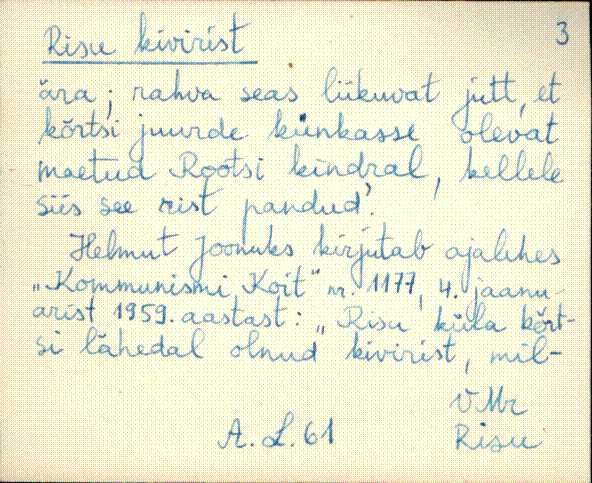 Risu kivirist
3
ära; rahva seas liikuvat jutt, et
kõrtsi juurde künkasse olevat
maetud Rootsi kindral, kellele
siis see rist pandud".
Helmut Joonuks kirjutab ajalehes
„Kommunismi Koit" nr. 1177, 4. jaanu-
arist 1959. aastast: „Risu küla kõrt-
si lähedal olnud kivirist, mil-
V.Mr
A. L. 61
Risu